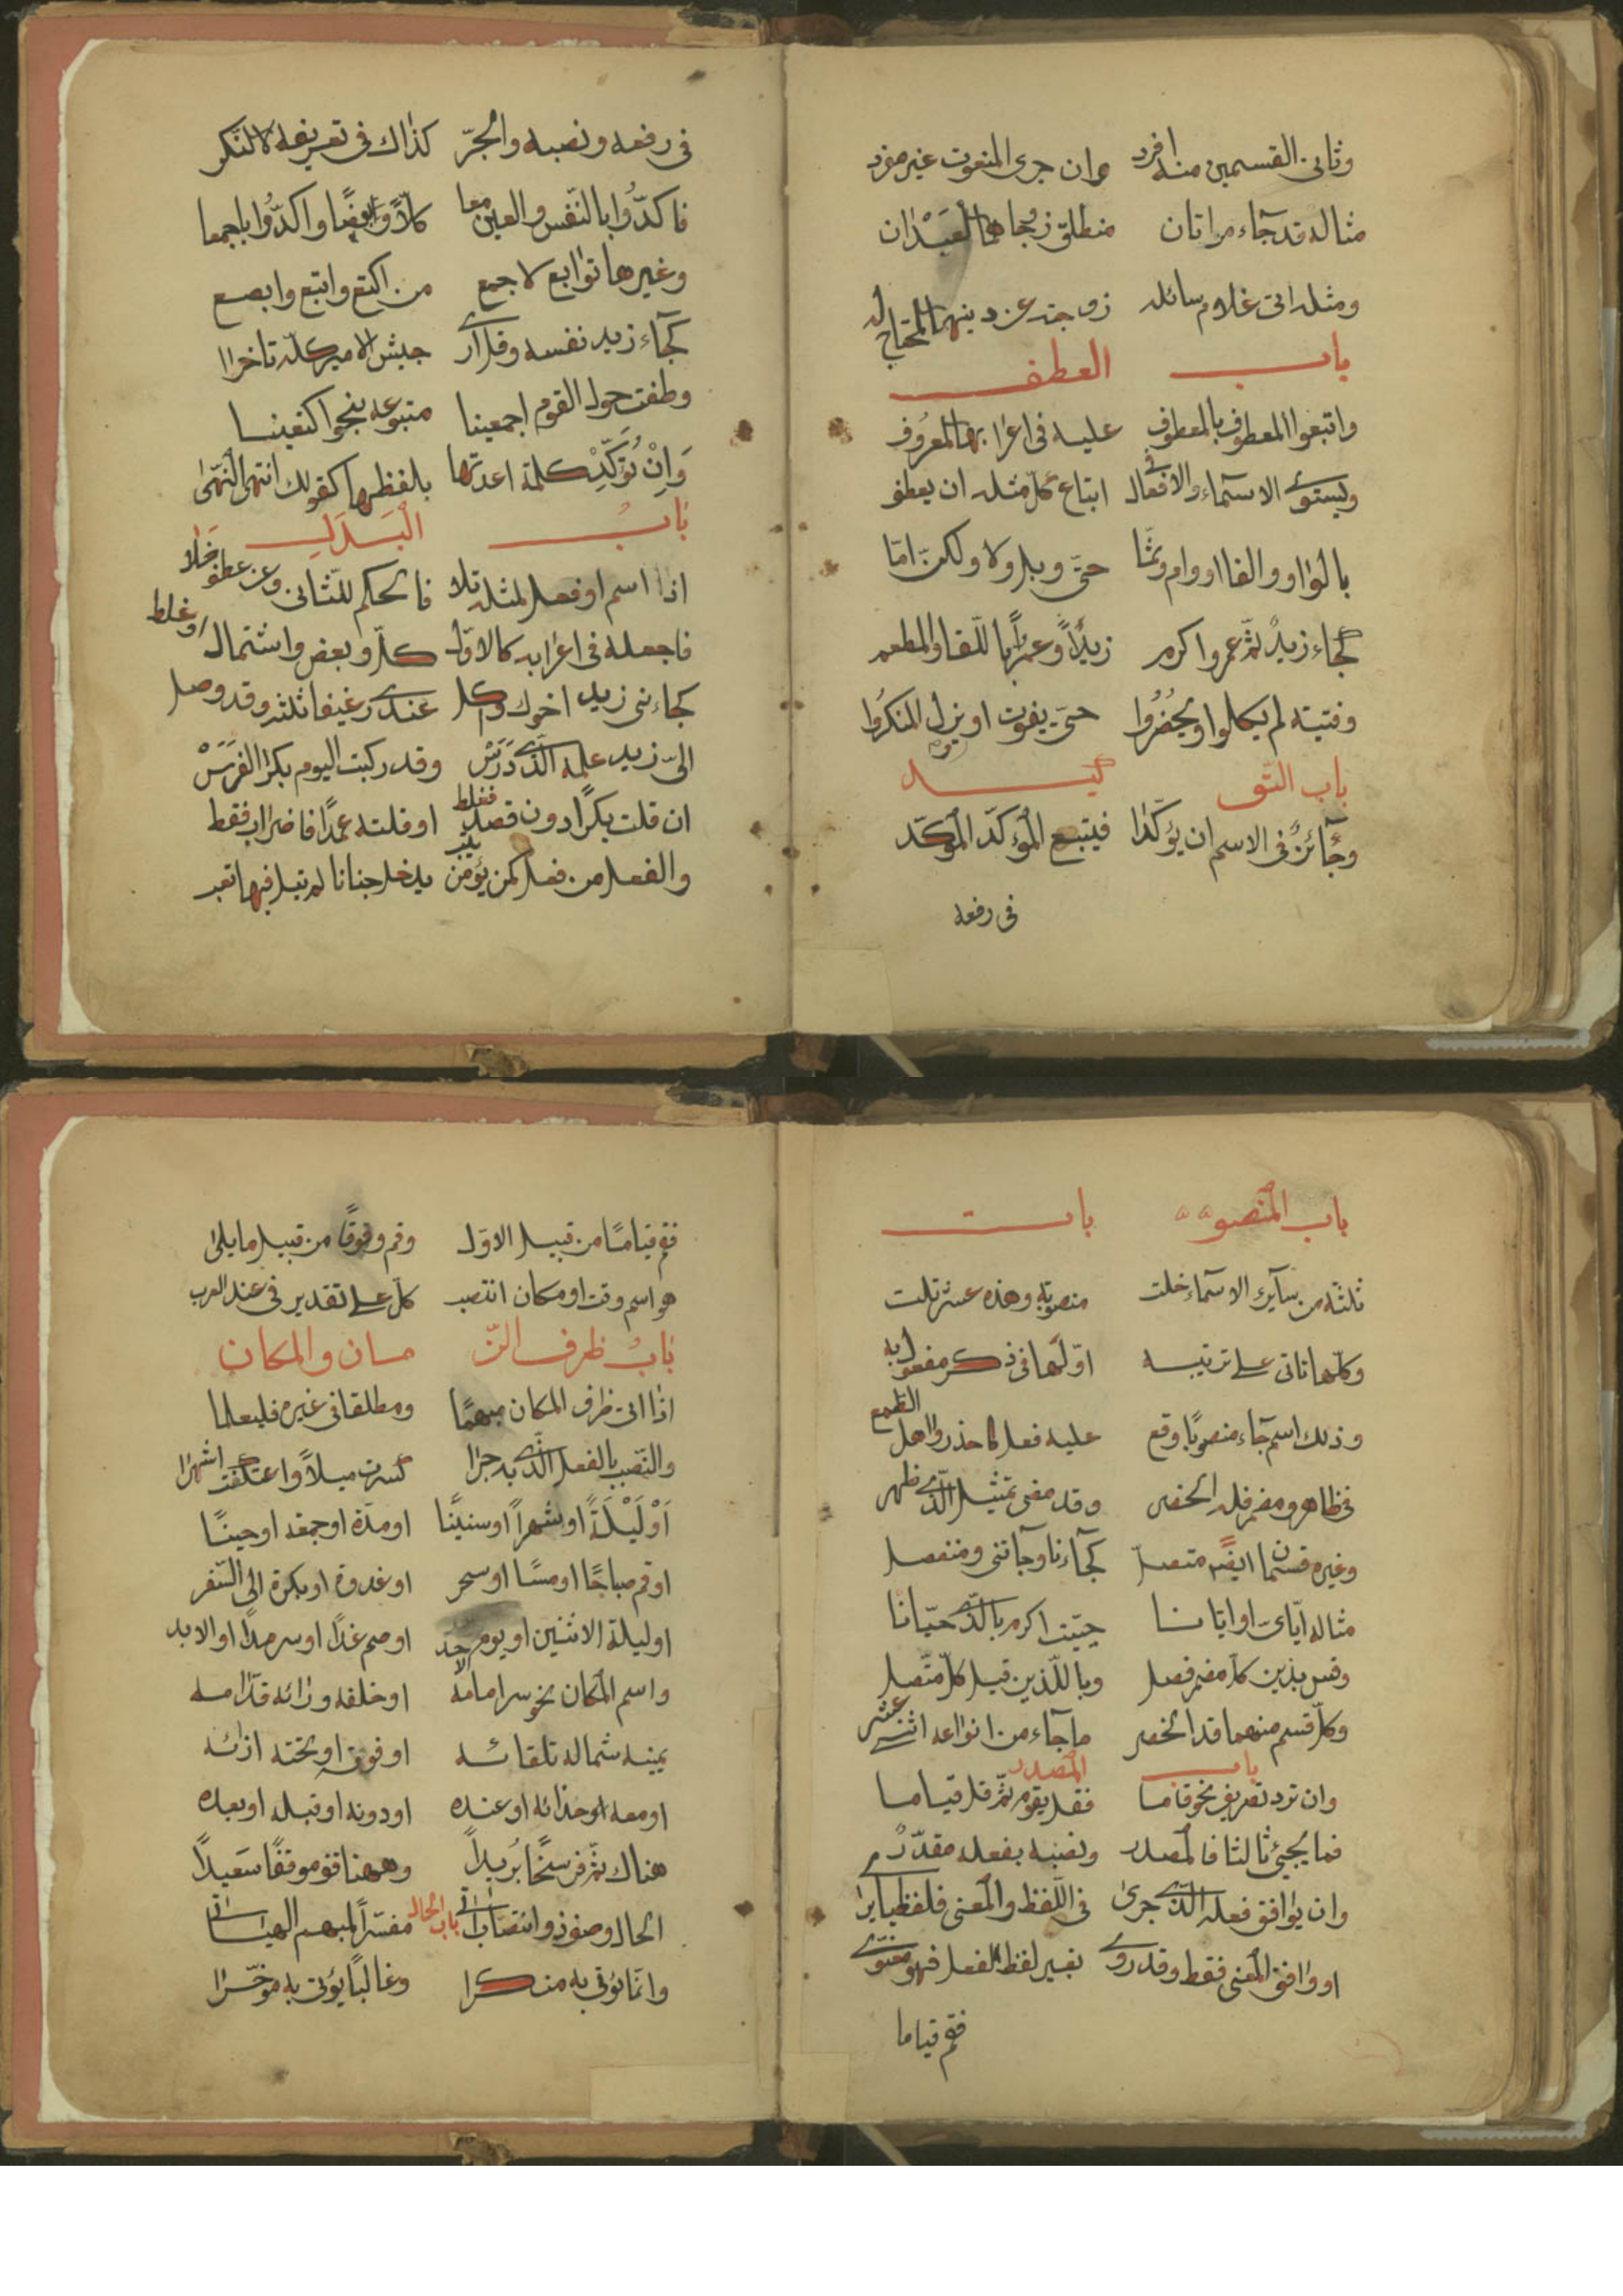 وثاني القسمين منه افرد وان جرى المنعوت غير مفرد
مثاله قد جآء مراتان منطلق زوجاهما العبدان
ومثله اتى غلام سائله زوجته عن دينها المحتاج له
باب العطف
واتبعوا المعطوف بالمعطوف عليه في اعرابه المعروف
ويستوي الاسمآء والافعال في اتباع كل مثله ان يعطف
بالواو والفا او وام وثما حتى وبل ولا ولكن اما
كجاء زيد ثم عمرو اكرم زيدًا وعمرًا باللقا والمطعم
وفتية لم ياكلوا او يحضروا حتى يفوت او يزول المنكروا
باب التوكيد
وجآئز في الاسم ان يؤكدا فيتبع المؤكد المؤكد
في رفعه
في رفعه ونصبه والجر كذاك في تعريفه لا النكر
فاكدوا بالنفس والعين معا كلاً وايضًا واكدوا باجمعا
وغيرها توابع لاجمع من اكتع وابتع وابصع
كجآء زيد نفسه وقل ارى جيش الامير كله تاخرا
وطفت حول القوم اجمعينا متبوعه بنحو اكتعينا
وَاِنْ تُؤَكِّدْ كلمة اعدتها بلفظها كقولك انتهى انتهى
بَابُ الْبَدَلِ
اذا اسم او فعل لمثله تلا فالحكم للثاني وعن عطف خلا
فاجعله في اعرابه كالاول كل وبعض واشتمال او غلط
كجاءني زيد اخوك واكل عندي رغيفا ثلثه وقد وصل
الى زيد علمه الذي دَرَسْ وقد ركبت اليوم بكرا الفَرَسْ
ان قلت بكرًا دون قصد فغلط او قلته عمدًا فاضراب فقط
والفعل من فعل كمن يؤمن يثب يدخل جنانا لم تبل فيها تعب
باب المنصوبات
ثلثة من سآير الاسمآء خلت منصوبة وهذه عشر تلت
وكلها تاتي على ترتيبه اولها في ذكر مفعول به
وذلك اسم جآء منصوبًا وقع عليه فعل كاحذروا اهل الطمع
في ظاهر ومضمر قد انحصر وقد مضى تمثيل الذي ظهر
وغيره قسمان ايضًا متصل كجآءنا وجآءني ومنفصل
مثاله اياي او ايانا حييت اكرم بالذي حيانا
وقس بذين كل مضمر فصل وباللذين قبل كل متصل
وكل قسم منهما قد انحصر ما جآء من انواعه اثنى عشر
باب المصدر
وان ترد تصريف نحو قاما فقل يقوم ثم قل قياما
فما يجيئ ثالثا فالمصدر ونصبه بفعله مقدر
وان يوافق فعله الذي جرى في اللفظ والمعنى فلفظيا يرى
او وافق المعنى فقط وقد روي بغير لفظ الفعل فهو معنوي
فقم قياما
فقم قيامًا من قبيل الاول وقم وقوفًا من قبيل ما يلي
هو اسم وقت او مكان انتصب كل على تقدير في عند العرب
بَابُ ظرف الزمان والمكان
اذا اتى ظرف المكان مبهمًا ومطلقا في غيره فليعلما
والنصب بالفعل الذي به جرا كسرت ميلاً واعتكفت اشهرا
اَوْ لَيْلَةً او شهرًا او سنينًا او مدة او جمعة او حينًا
او قم صباحًا او مسًا او سحر او غدوة او بكرة الى السفر
او ليلة الاثنين او يوم الاحد او صم غدًا او سرمدًا او الابد
واسم المكان نحو سر امامه او خلفه ورائه قدامه
يمينه شماله تلقائه او فوقه او تحته ازائه
او معه او حذائه او عنده او دونه او قبله او بعده
هناك ثم فرسخًا بريدًا وههنا قف موقفًا سعيدًا
باب الحال
الحال وصف ذو انتصاب آتي مفسرًا لمبهم الهيئات
وانما يؤتى به منكرا وغالبًا يؤتى به مؤخرا